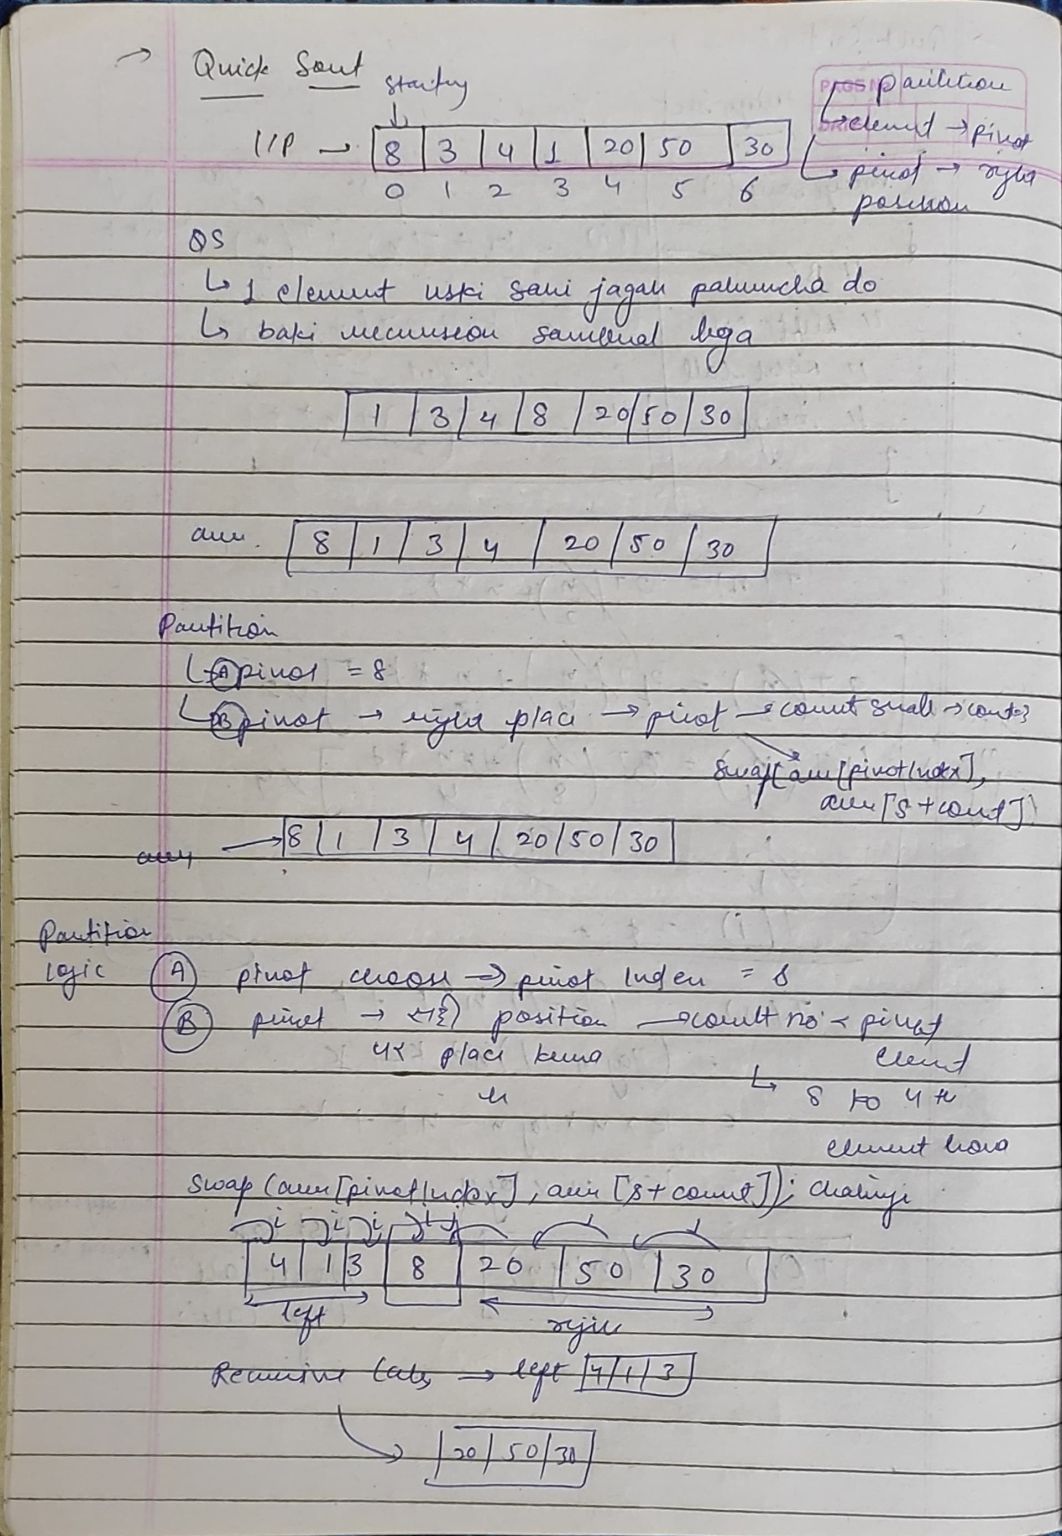 → Quick Sort
starting
I/P → 8 3 4 1 20 50 30
0 1 2 3 4 5 6
PAGE NO
DATE
partition
element → pivot
pivot → right
position
QS
↳ 1 element uski sahi jagah pahuncha do
↳ baki recursion sambhal lega
1 3 4 8 20 50 30
arr. 8 1 3 4 20 50 30
Partition
↳ A pivot = 8
↳ B pivot → right place → pivot → count small → count=3
swap(arr[pivotIndex],
arr[s+count])
arr → 8 1 3 4 20 50 30
Partition
logic
A pivot choose → pivot Index = s
B pivot → सही position → count no < pivot
पर place kerna element
↳ 8 to 4th
element hora
swap (arr[pivotIndex], arr [s+count]);
i i i j j j
4 1 3 8 20 50 30
left right
Recursive Calls → left 4 1 3
→ 20 50 30